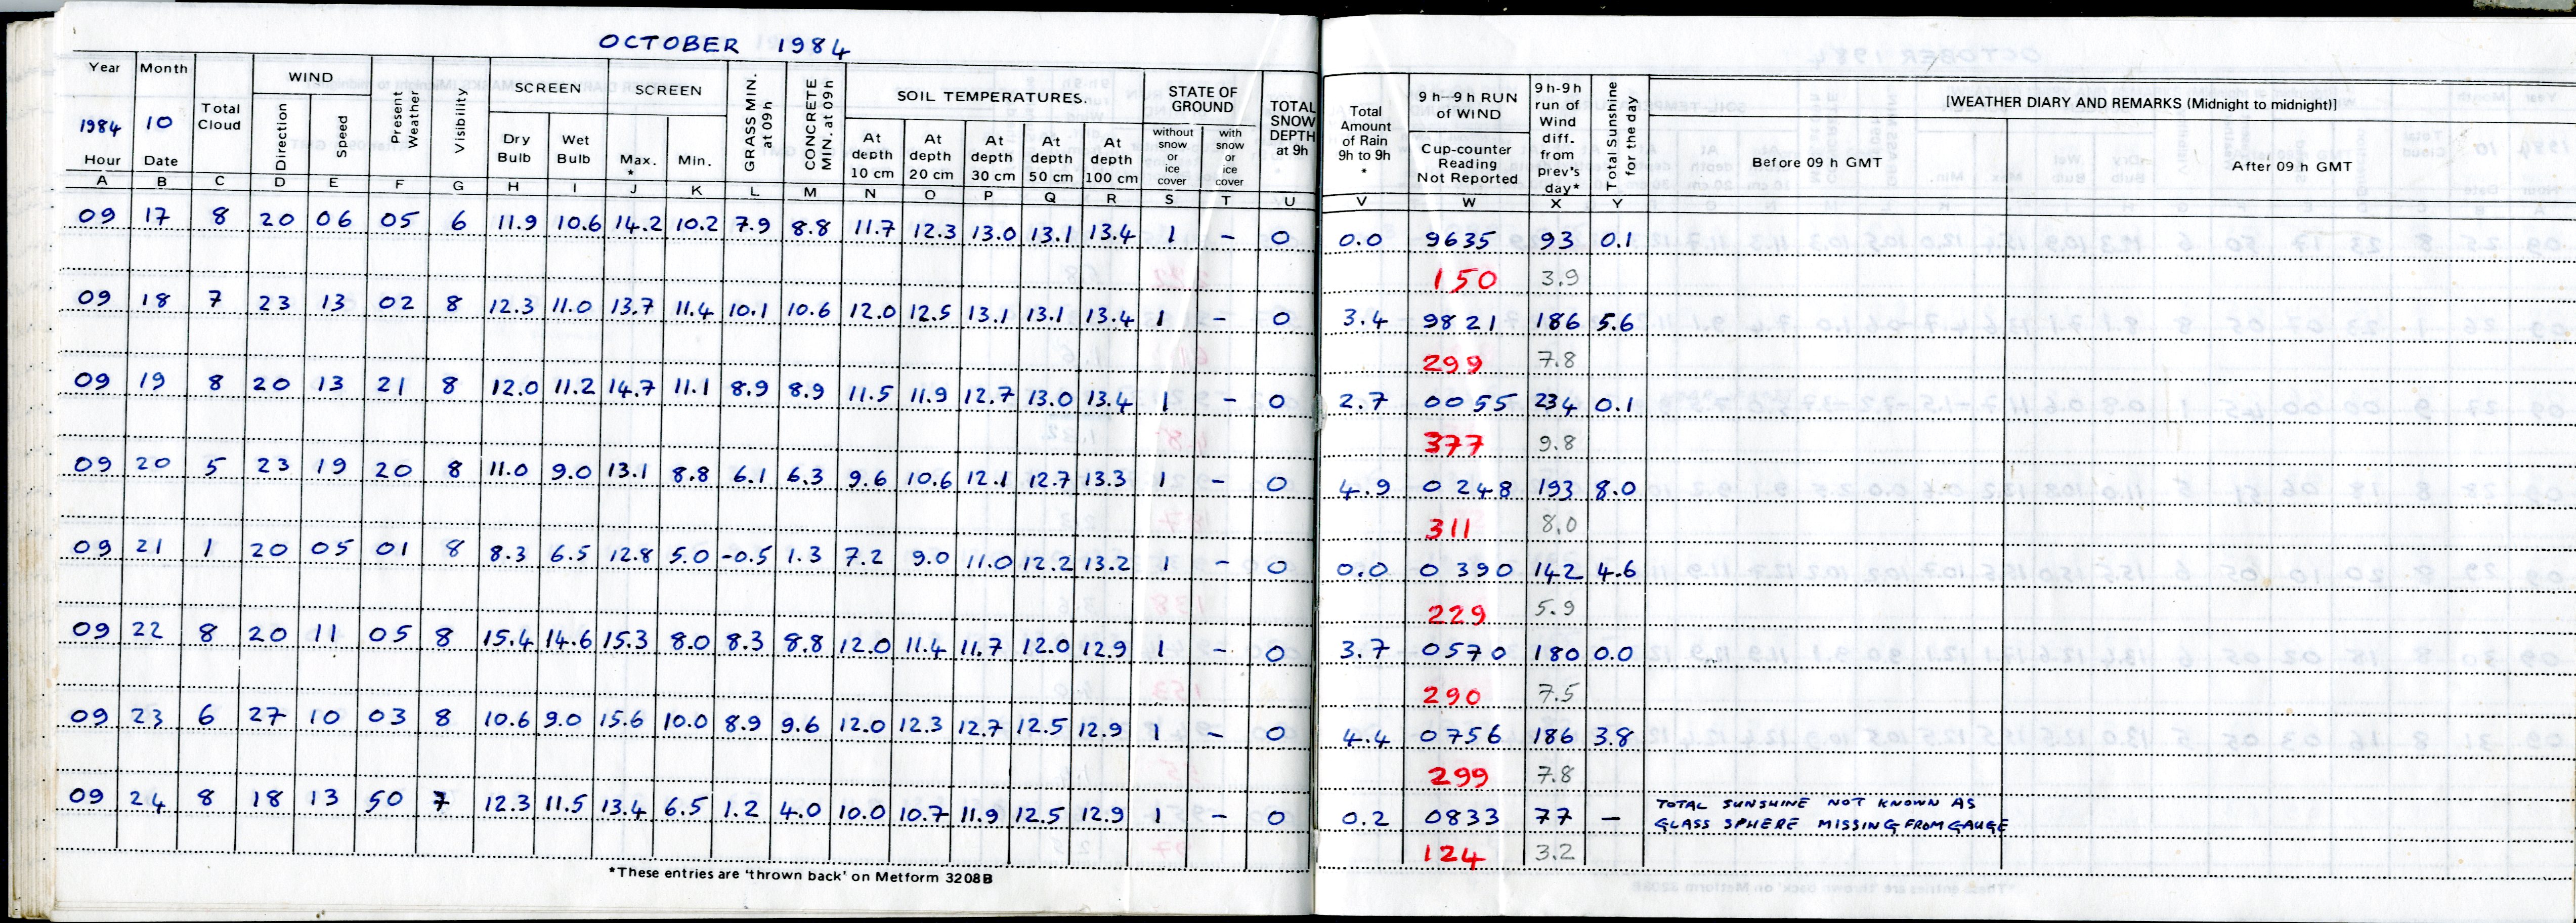 OCTOBER 1984
Year Month Total Cloud WIND Present Weather Visibility SCREEN SCREEN GRASS MIN. at 09h CONCRETE MIN. at 09h SOIL TEMPERATURES. STATE OF GROUND TOTAL SNOW DEPTH at 9h Total Amount of Rain 9h to 9h * 9h–9h RUN of WIND 9h-9h run of Wind diff. from prev's day* Total Sunshine for the day [WEATHER DIARY AND REMARKS (Midnight to midnight)]
1984 10 Direction Speed Dry Bulb Wet Bulb Max. * Min. At depth 10 cm At depth 20 cm At depth 30 cm At depth 50 cm At depth 100 cm without snow or ice cover with snow or ice cover Cup-counter Reading Not Reported Before 09 h GMT After 09 h GMT
Hour Date
A B C D E F G H I J K L M N O P Q R S T U V W X Y
09 17 8 20 06 05 6 11.9 10.6 14.2 10.2 7.9 8.8 11.7 12.3 13.0 13.1 13.4 1 – 0 0.0 9635 93 0.1
150 3.9
09 18 7 23 13 02 8 12.3 11.0 13.7 11.4 10.1 10.6 12.0 12.5 13.1 13.1 13.4 1 – 0 3.4 9821 186 5.6
299 7.8
09 19 8 20 13 21 8 12.0 11.2 14.7 11.1 8.9 8.9 11.5 11.9 12.7 13.0 13.4 1 – 0 2.7 0055 234 0.1
377 9.8
09 20 5 23 19 20 8 11.0 9.0 13.1 8.8 6.1 6.3 9.6 10.6 12.1 12.7 13.3 1 – 0 4.9 0248 193 8.0
311 8.0
09 21 1 20 05 01 8 8.3 6.5 12.8 5.0 -0.5 1.3 7.2 9.0 11.0 12.2 13.2 1 – 0 0.0 0390 142 4.6
229 5.9
09 22 8 20 11 05 8 15.4 14.6 15.3 8.0 8.3 8.8 12.0 11.4 11.7 12.0 12.9 1 – 0 3.7 0570 180 0.0
290 7.5
09 23 6 27 10 03 8 10.6 9.0 15.6 10.0 8.9 9.6 12.0 12.3 12.7 12.5 12.9 1 – 0 4.4 0756 186 3.8
299 7.8
09 24 8 18 13 50 7 12.3 11.5 13.4 6.5 1.2 4.0 10.0 10.7 11.9 12.5 12.9 1 – 0 0.2 0833 77 – TOTAL SUNSHINE NOT KNOWN AS
GLASS SPHERE MISSING FROM GAUGE
124 3.2
*These entries are 'thrown back' on Metform 3208B